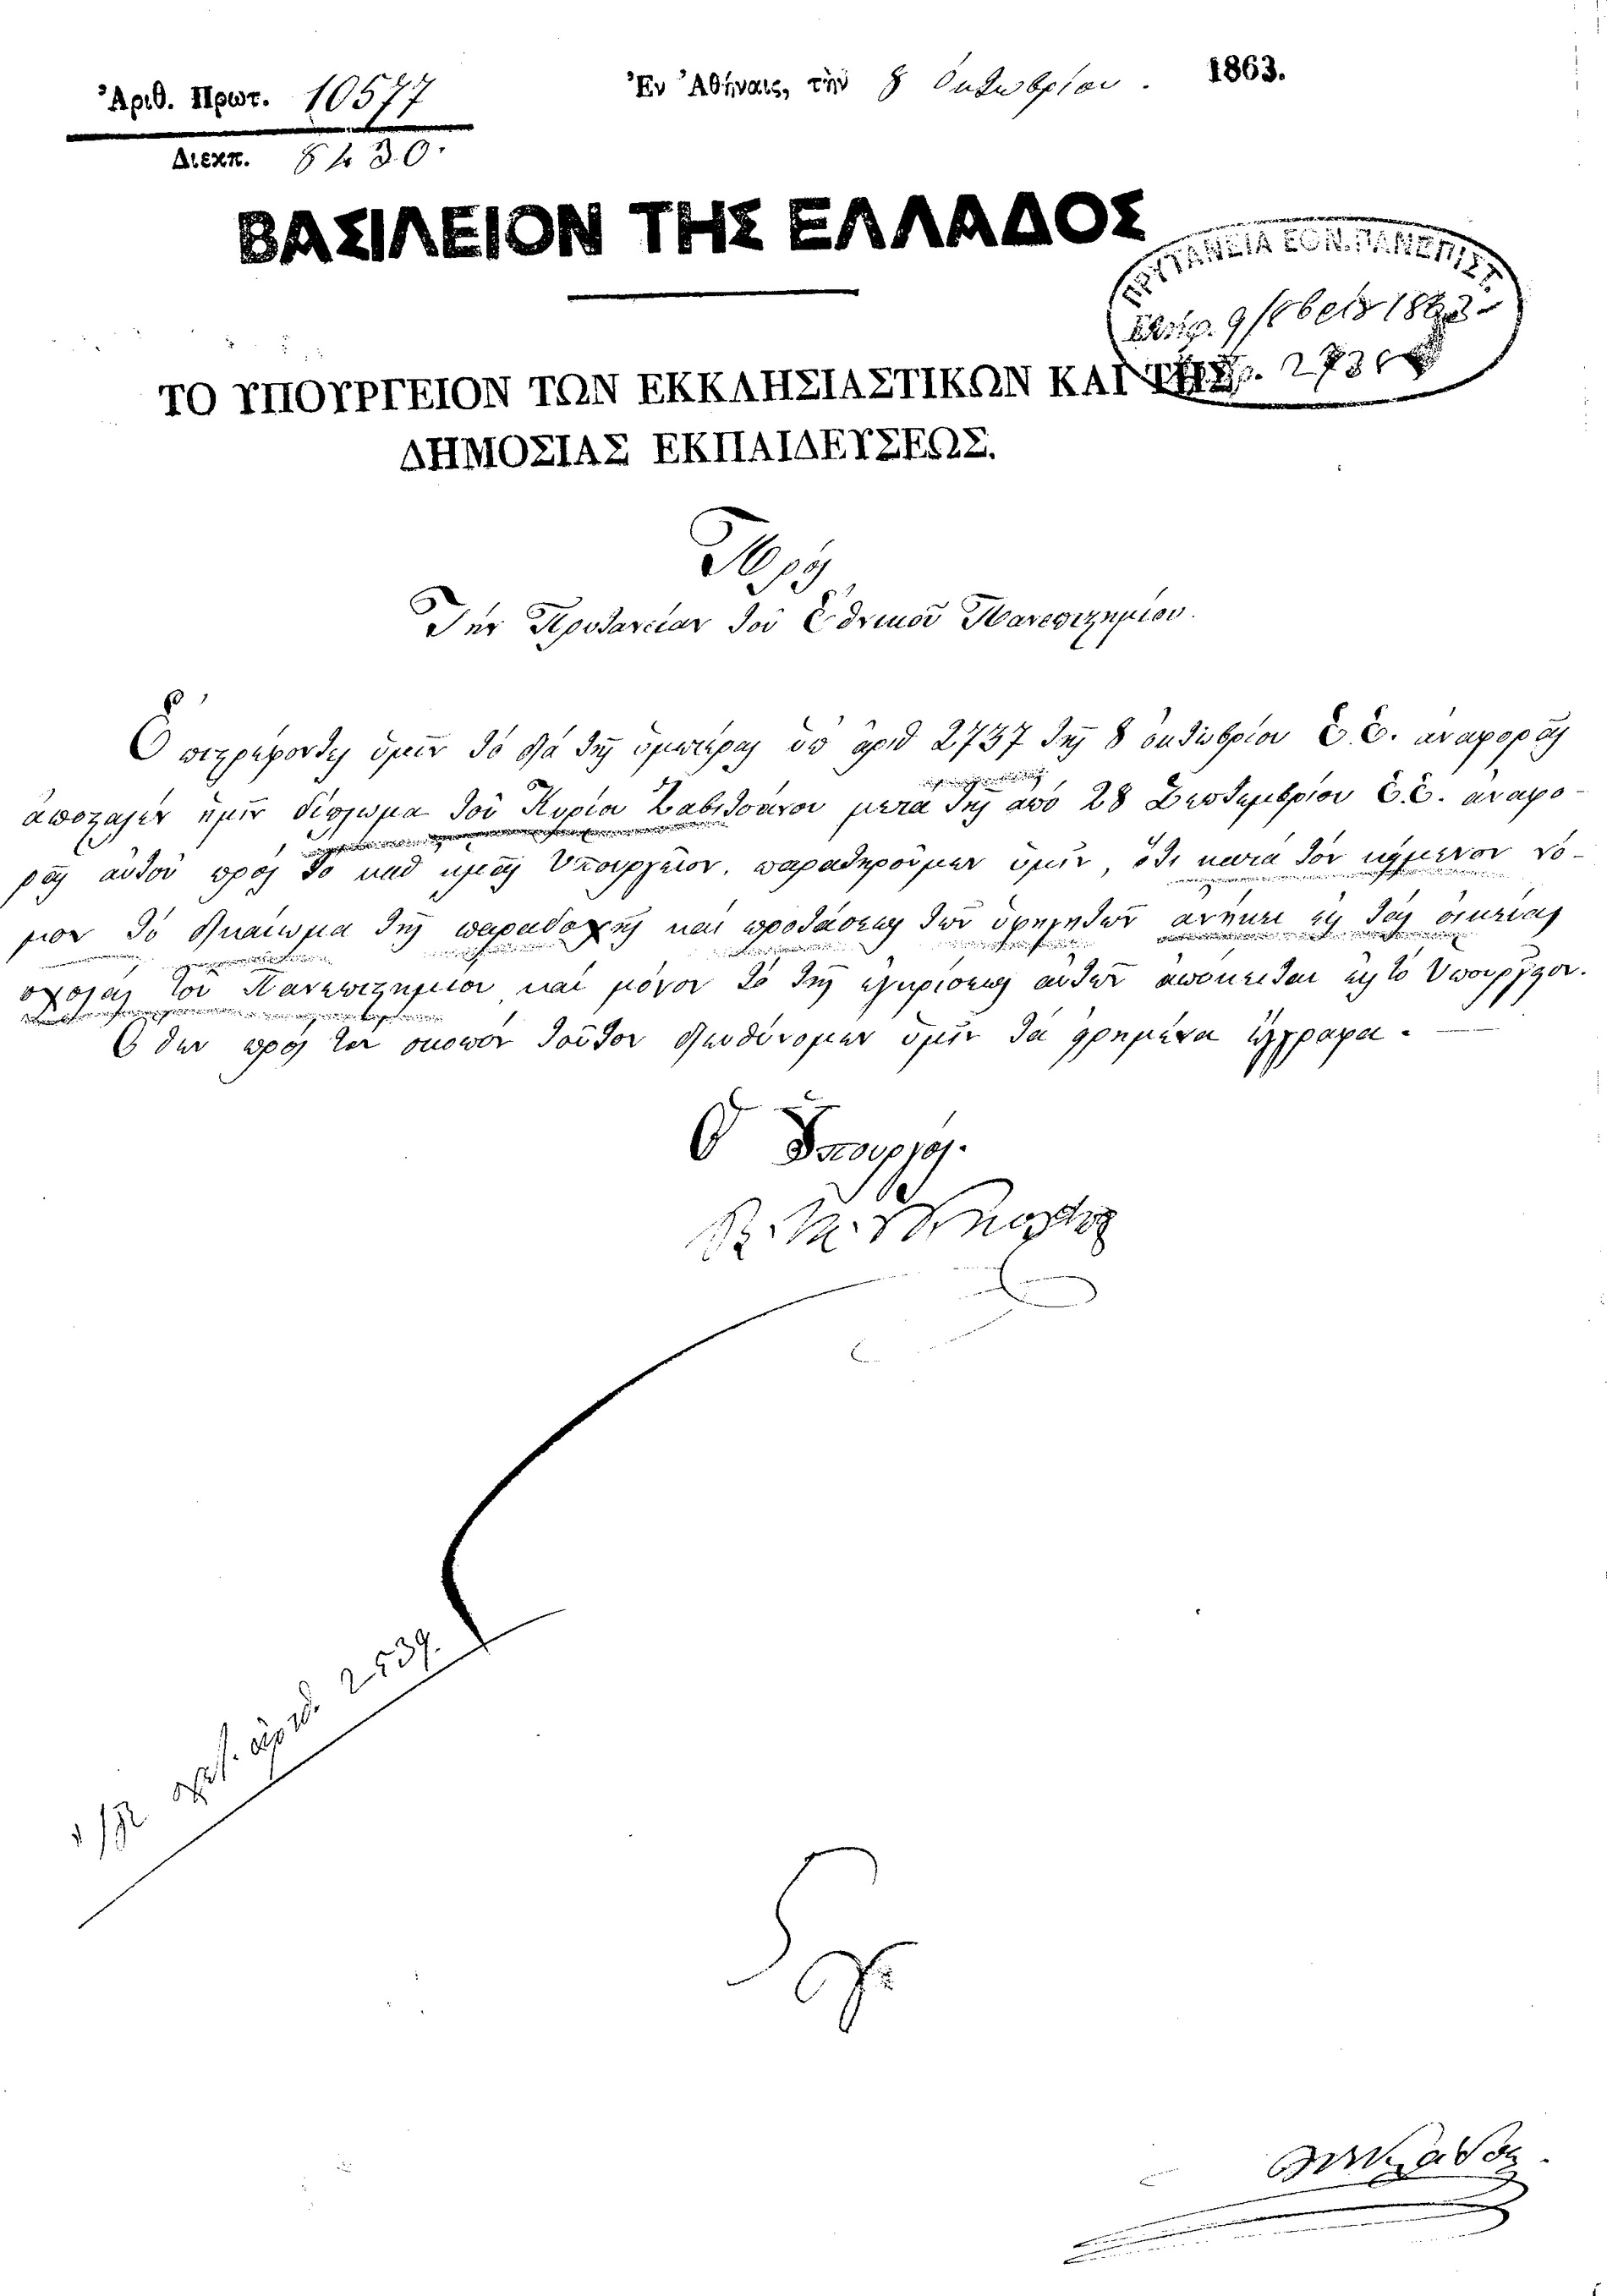 Ἀριθ. Πρωτ. 10577
Διεκπ. 8430.
Ἐν Ἀθήναις, τὴν 8 Ὀκτωβρίου. 1863.
ΒΑΣΙΛΕΙΟΝ ΤΗΣ ΕΛΛΑΔΟΣ
ΠΡΥΤΑΝΕΙΑ ΕΘΝ. ΠΑΝΕΠΙΣΤ.
9 1863
ΤΟ ΥΠΟΥΡΓΕΙΟΝ ΤΩΝ ΕΚΚΛΗΣΙΑΣΤΙΚΩΝ ΚΑΙ ΤΗΣ
ΔΗΜΟΣΙΑΣ ΕΚΠΑΙΔΕΥΣΕΩΣ.
Πρὸς
Τὴν Πρυτανείαν τοῦ Ἐθνικοῦ Πανεπιστημίου.
Ἐπιστρέφοντες ὑμῖν τὸ διὰ τῆς ὑμετέρας ὑπ ἀριθ 2737 τῆς 8 ὀκτωβρίου ἐ.ἐ. ἀναφορᾶς
ἀποσταλὲν ἡμῖν δίπλωμα τοῦ Κυρίου μετὰ τῆς ἀπὸ 28 Σεπτεμβρίου ἐ.ἐ. ἀναφο-
ρᾶς αὐτοῦ πρὸς τὸ καθ ἡμᾶς Ὑπουργεῖον, παρατηροῦμεν ὑμῖν, ὅτι κατὰ τὸν κείμενον νό-
μον τὸ δικαίωμα τῆς παραδοχῆς καὶ προτάσεως τῶν ὑφηγητῶν ἀνήκει εἰς τὰς οἰκείας
σχολὰς τοῦ Πανεπιστημίου καὶ μόνον τὸ τῆς ἐγκρίσεως αὐτῶν ἀπόκειται εἰς τὸ Ὑπουργεῖον.
Ὅθεν πρὸς τὸν σκοπὸν τοῦτον διευθύνομεν ὑμῖν τὰ εἰρημένα ἔγγραφα.
Ὁ Ὑπουργός.
ἀριθ. 2539.